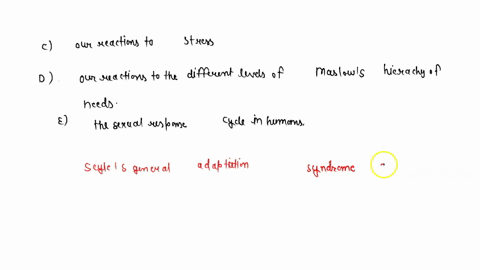 c) our reactions to stress
D). our reactions to the different levels of Maslow's hierachy of
needs.
E) the sexual response cycle in humans.
Seyle's general adaptation syndrome